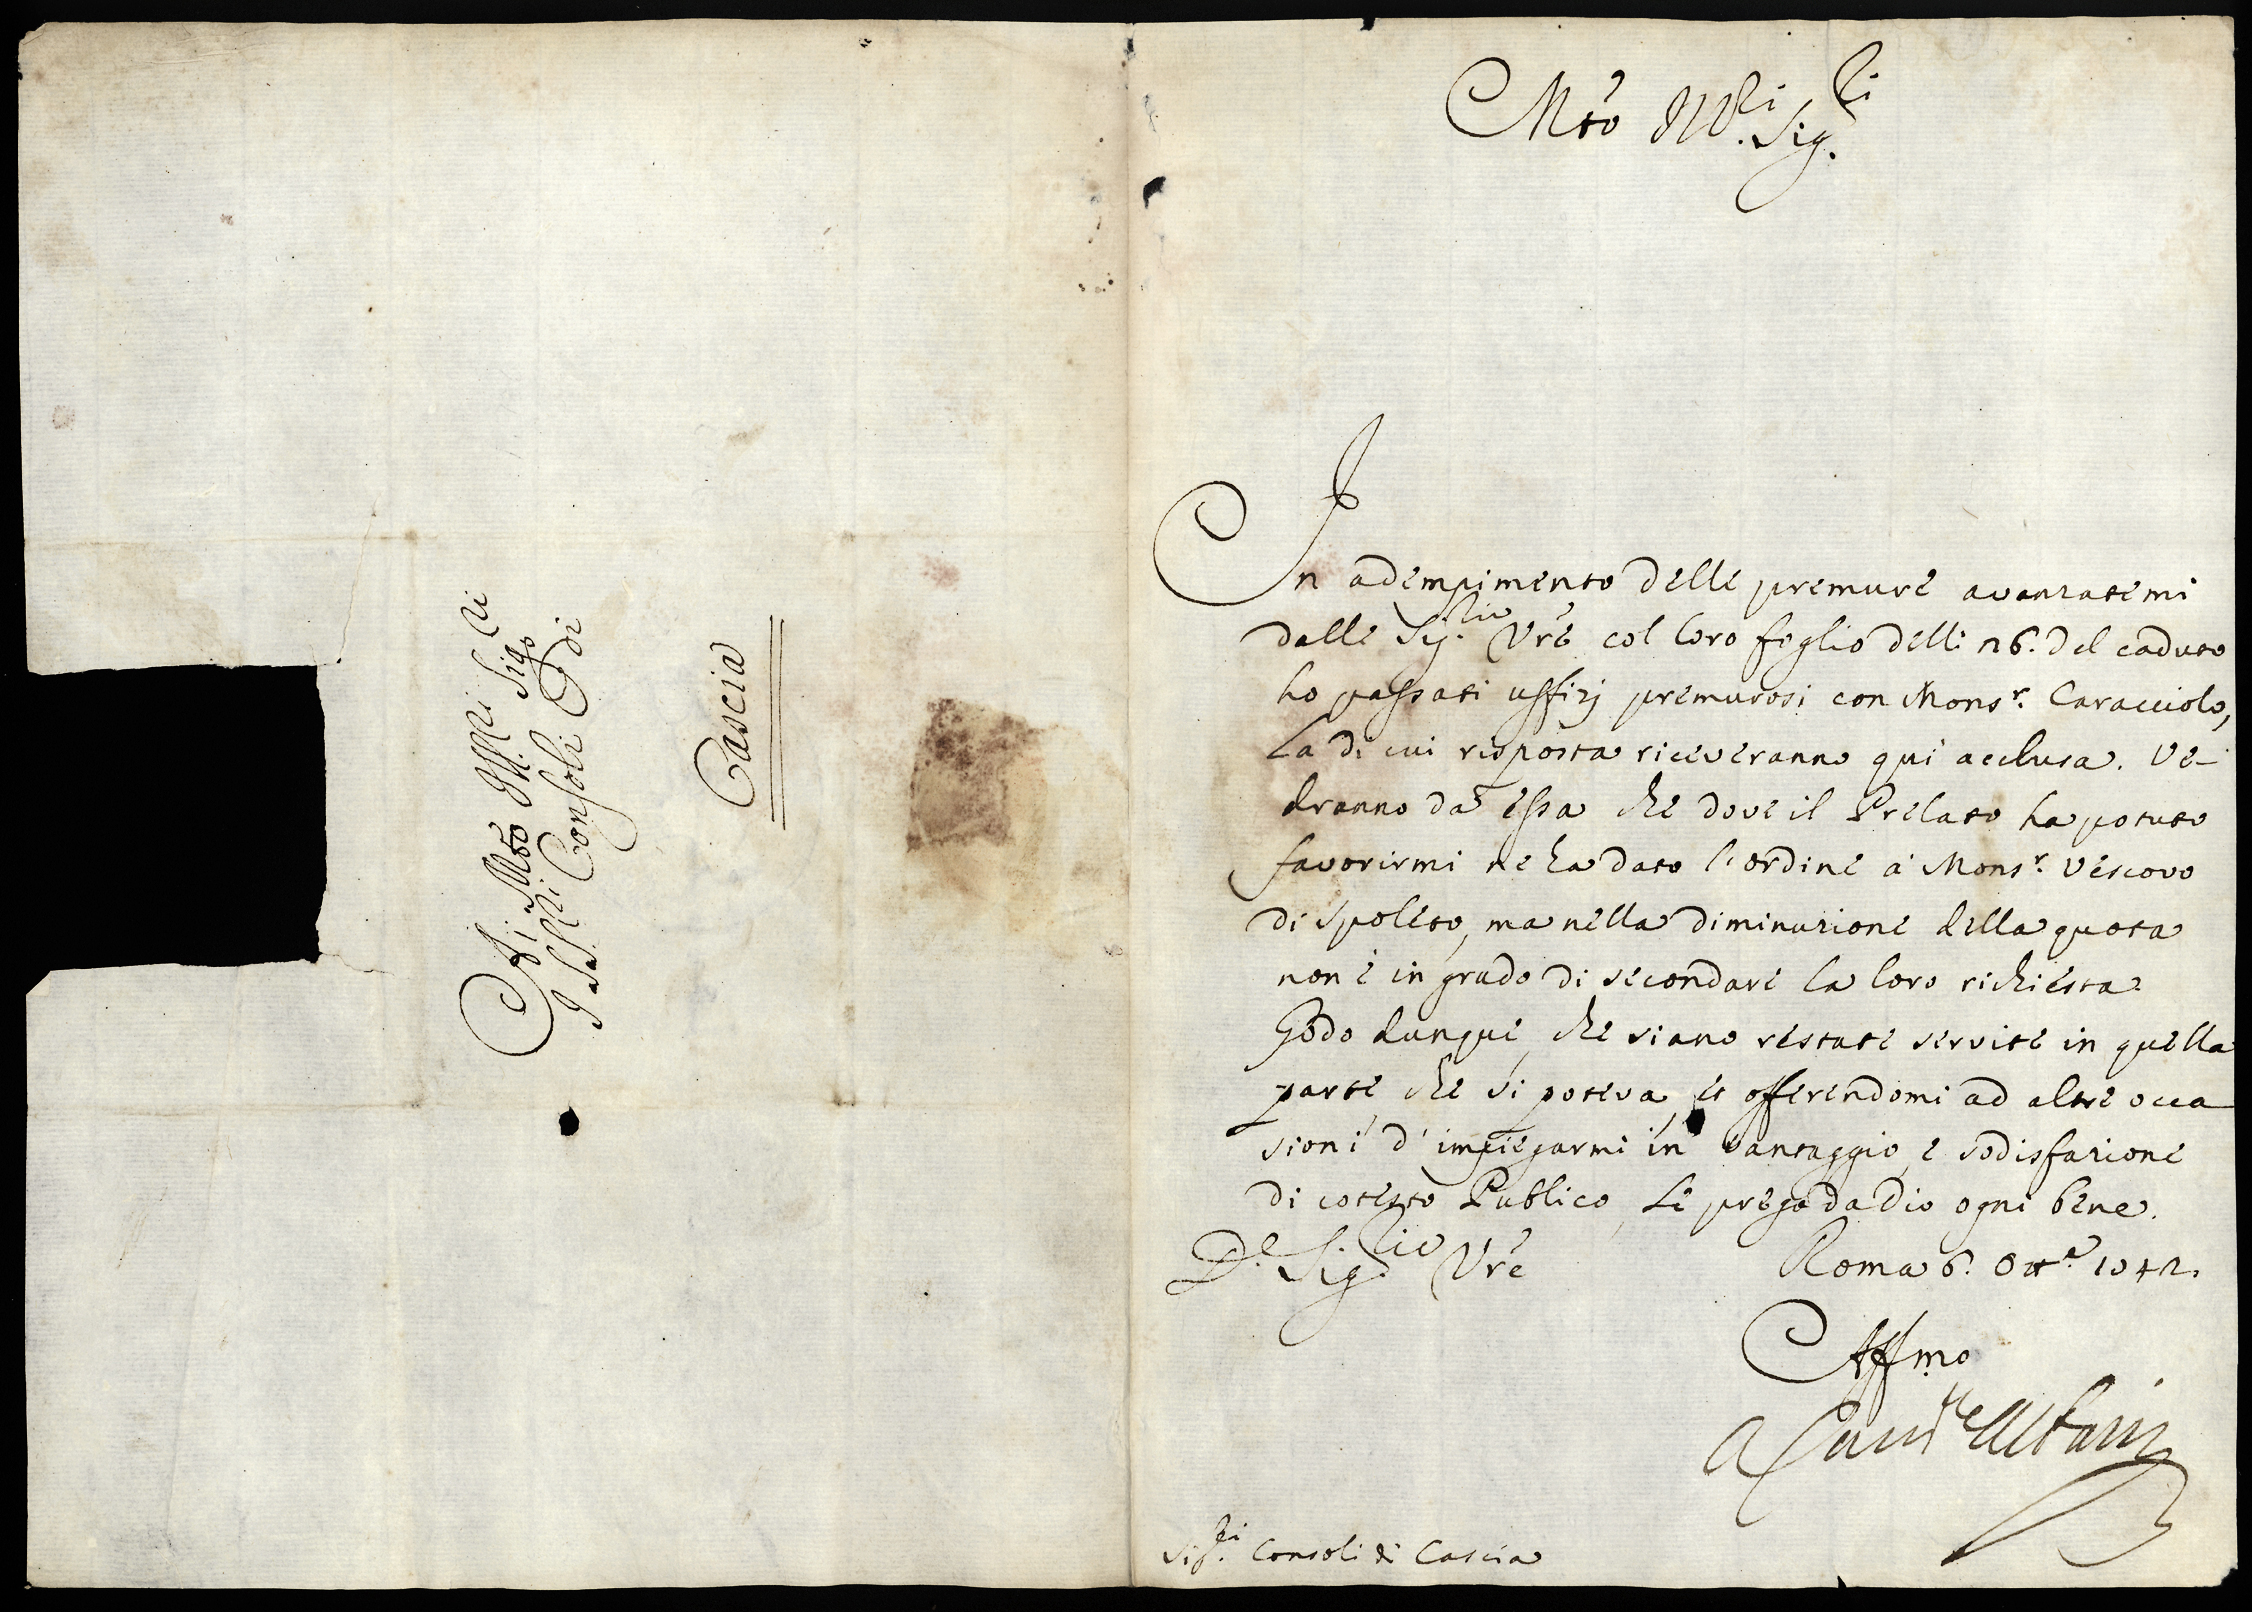 Mto Ill.ri Sig.ri
In adempimento delle premure avanzatemi
dalle Sig.rie Vre col loro foglio delli 26. del caduto
ho passati uffizj premurosi con Mons.r Caracciolo,
la di cui risposta riceveranno qui acclusa. Ve-
dranno da essa che dove il Prelato ha potuto
favorirmi ne ha dato l'ordine a Mons.r Vescovo
di Spoleto, ma nella diminuzione della quota
non è in grado di secondare la loro richiesta
Godo dunque, che siano restate servite in quella
parte, che si poteva, et offerendomi ad altre occa
sioni d'impiegarmi in vantaggio, e sodisfazione
di cotesto Publico, Le prego da Dio ogni bene.
D.e Sig.rie Vre Roma 6. Ott.e 1742.
Aff.mo
A Card.le Albani
Sig.ri Consoli di Cascia
Ai Mto Ill.ri Sig.ri
I SS.ri Consoli di
Cascia